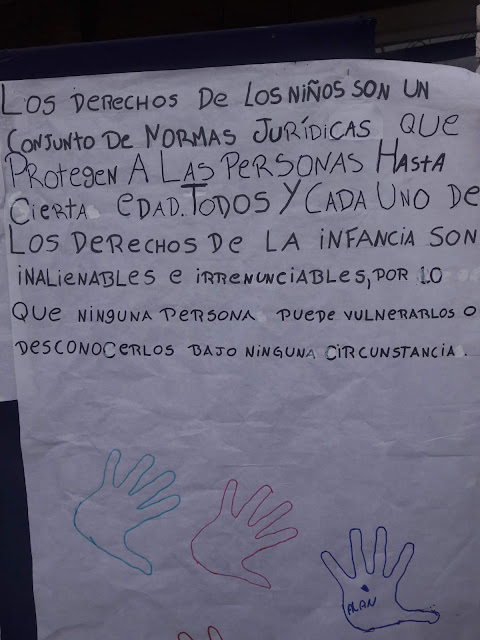 Los DERECHOS DE LOS NIÑOS SON UN
CONJUNTO DE NORMAS JURÍDICAS QUE
PROTEGEN A LAS PERSONAS HASTA
CIERTA EDAD. TODOS Y CADA UNO DE
LOS DERECHOS DE LA INFANCIA SON
INALIENABLES E IRRENUNCIABLES, POR LO
QUE NINGUNA PERSONA PUEDE VULNERARLOS O
DESCONOCERLOS BAJO NINGUNA CIRCUNSTANCIA.
ALAN